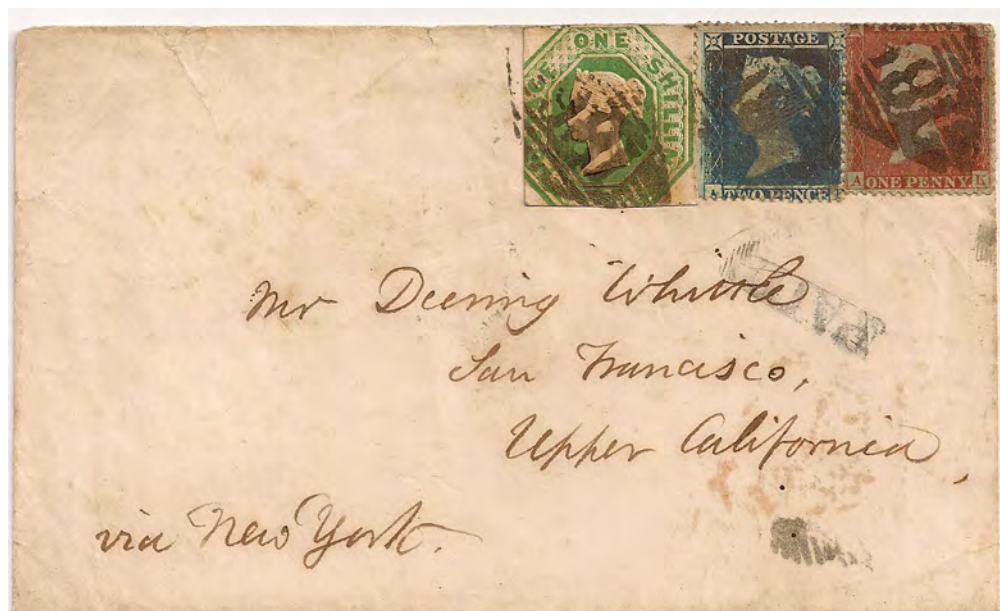 POSTAGE ONE SHILLIN
POSTAGE
A TWO PENCE
POSTAGE
A ONE PENNY K
PAI
Mr Deening Whittle
San Francisco,
Upper California,
via New York.